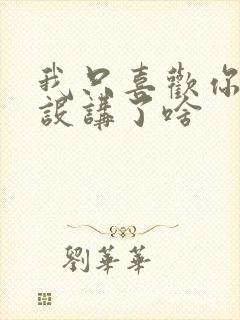 我只喜歡你
設講了啥
劉華華